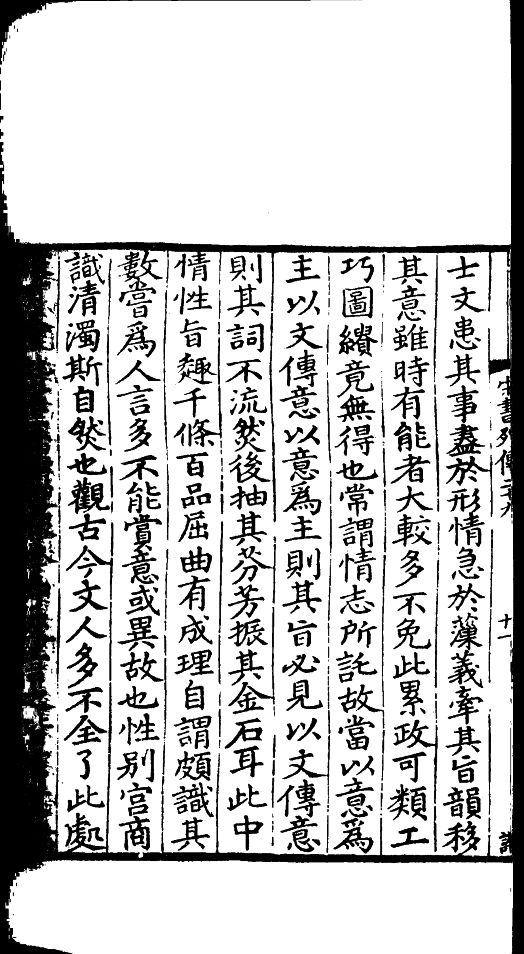 士文患其事盡於形情急於藻義牽其旨韻移
其意雖時有能者大較多不免此累政可類工
巧圖繢竟無得也常謂情志所託故當以意爲
主以文傳意以意爲主則其旨必見以文傳意
則其詞不流然後抽其芬芳振其金石耳此中
情性旨趣千條百品屈曲有成理自謂頗識其
數嘗爲人言多不能賞意或異故也性别宫商
識清濁斯自然也觀古今文人多不全了此處